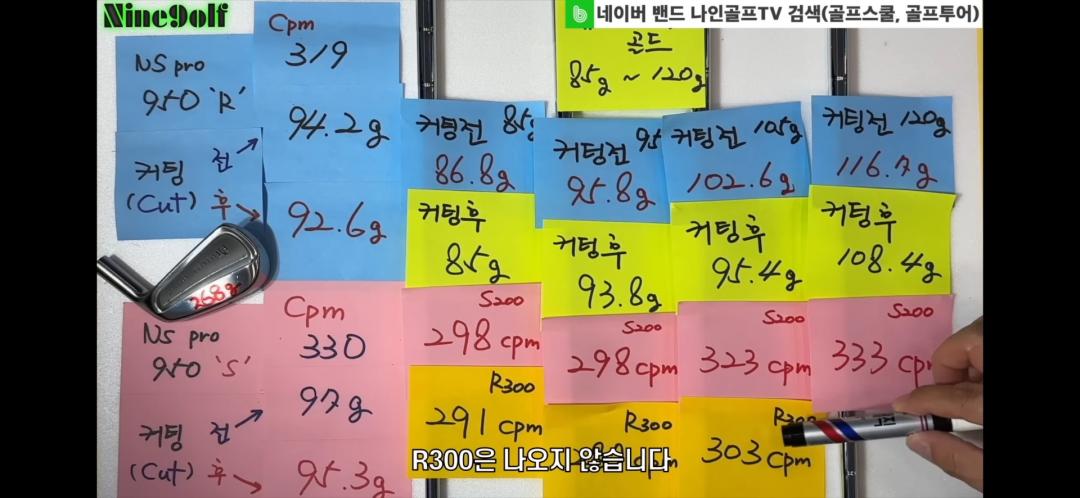 Nine9olf
네이버 밴드 나인골프TV 검색(골프스쿨, 골프투어)
골드
85g ~ 120g
NS pro
950 'R'
커팅 전
(Cut) 후
Cpm
319
94.2g
92.6g
커팅전 85g
86.8g
커팅후
85g
S200
298 cpm
R300
291 cpm
커팅전 95
95.8g
커팅후
93.8g
S200
298 cpm
R300
cpm
커팅전 105g
102.6g
커팅후
95.4g
S200
323 cpm
R300
303 cpm
커팅전 120g
116.7g
커팅후
108.4g
S200
333 cpm
268g
NS pro
950 'S'
커팅 전
(Cut) 후
Cpm
330
97g
95.3g
R300은 나오지 않습니다